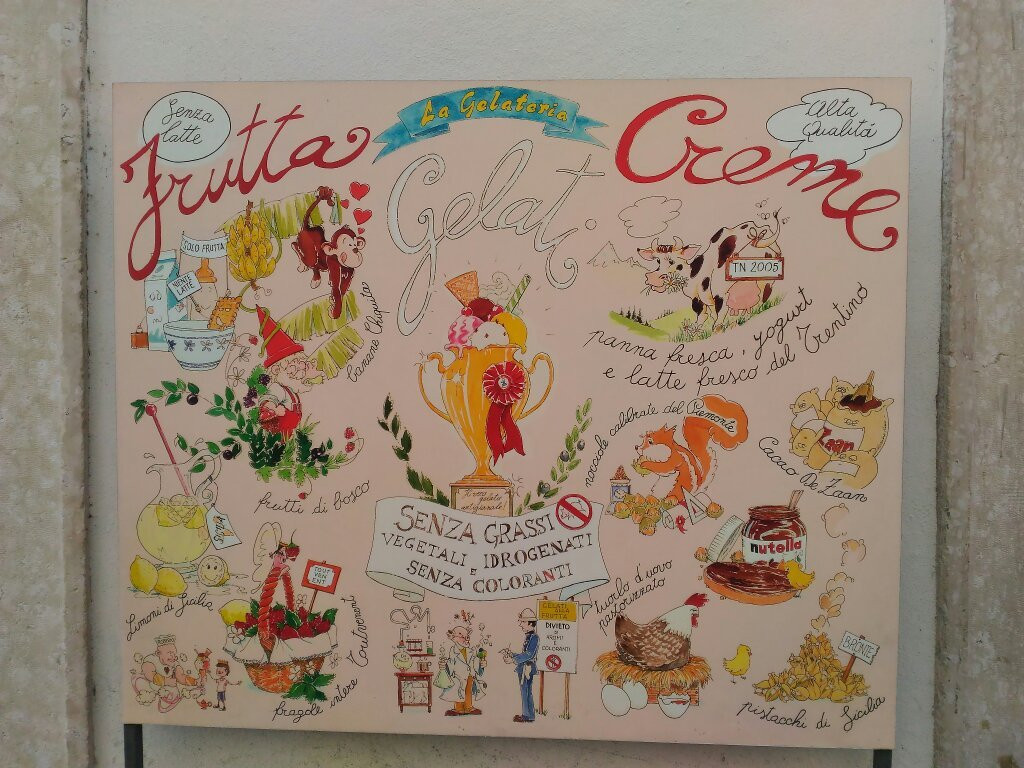 La Gelateria
Senza
latte
Frutta
Gelati
Alta
Qualitá
Creme
SOLO FRUTTA
NIENTE
LATTE
Banane Chiquita
frutti di bosco
Limoni di Sicilia
TOUT
VEN
ENT
Toutvenent
fragole intere
Il vero
gelato
artigianale!
SENZA GRASSI
VEGETALI IDROGENATI
E
SENZA COLORANTI
GELATI
ALLA
FRUTTA
DIVIETO
DI
AROMI
E
COLORANTI
TN 2005
panna fresca, yogurt
e latte fresco del Trentino
nocciole calibrate del Piemonte
Zaan
Cacao De Zaan
nutella
tuorlo d'uovo
pastorizzato
BRONTE
pistacchi di Sicilia